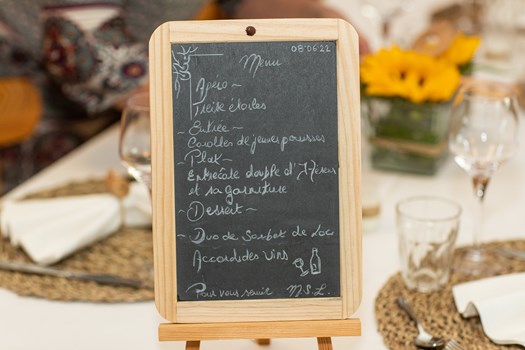 08.05.22
Menu
Apéro ~
Treize étoiles
~ Entrée ~
Corolles de jeunes pousses
~ Plat ~
Entrecôte double d'
et sa garniture
~ Dessert ~
~ Duo de Sorbet de Loc
Accord des Vins
Pour vous servir M.S.L.